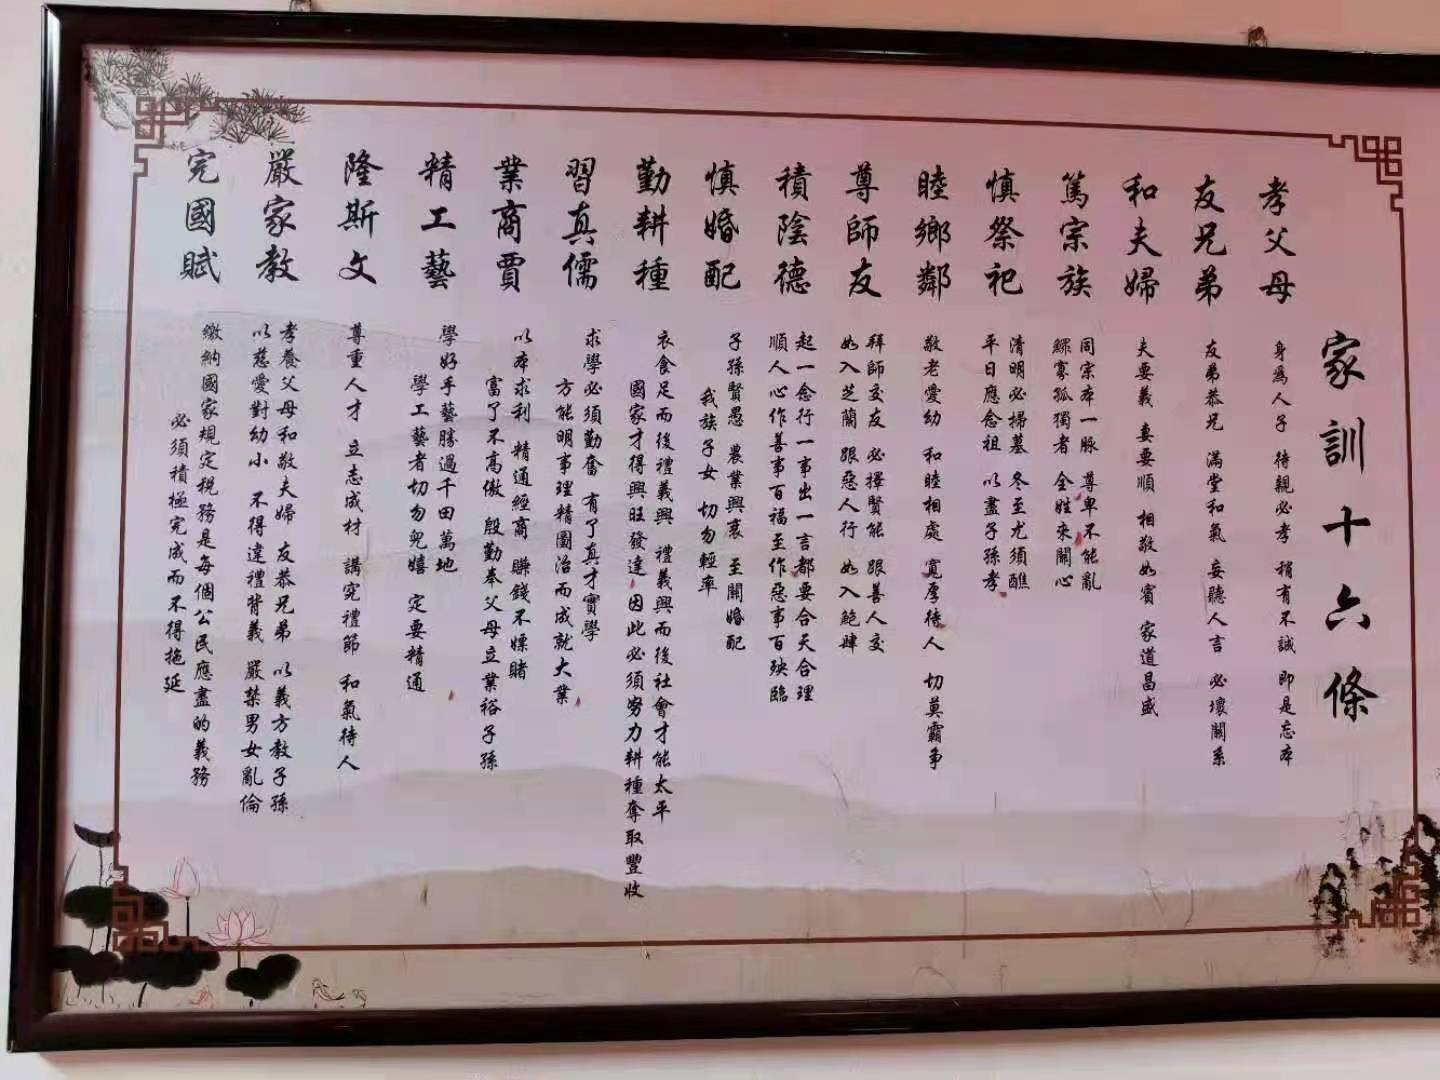 家訓十六條
孝父母
身為人子 待親必孝 稍有不誠 即是忘本
友兄弟
友弟恭兄 滿堂和氣 妄聽人言 必壞關系
和夫婦
夫要義 妻要順 相敬如賓 家道昌盛
篤宗族
同宗本一脈 尊卑不能亂
鰥寡孤獨者 全姓來關心
慎祭祀
清明必掃墓 冬至尤須醮
平日應念祖 以盡子孫孝
睦鄉鄰
敬老愛幼 和睦相處 寬厚待人 切莫霸爭
尊師友
拜師交友 必擇賢能 跟善人交
如入芝蘭 跟惡人行 如入鮑肆
積陰德
起一念行一事出一言都要合天合理
順人心作善事百福至作惡事百殃臨
慎婚配
子孫賢愚 農業興衰 至關婚配
我族子女 切勿輕率
勤耕種
衣食足而後禮義興 禮義興而後社會才能太平
國家才得興旺發達 因此必須努力耕種奪取豐收
習真儒
求學必須勤奮 有了真才實學
方能明事理精圖治而成就大業
業商賈
以本求利 精通經商 賺錢不嫖賭
富了不高傲 殷勤奉父母立業裕子孫
精工藝
學好手藝勝過千田萬地
學工藝者切勿兒嬉 定要精通
隆斯文
尊重人才 立志成材 講究禮節 和氣待人
嚴家教
孝養父母和敬夫婦 友恭兄弟 以義方教子孫
以慈愛對幼小 不得違禮背義 嚴禁男女亂倫
完國賦
繳納國家規定稅務是每個公民應盡的義務
必須積極完成而不得拖延